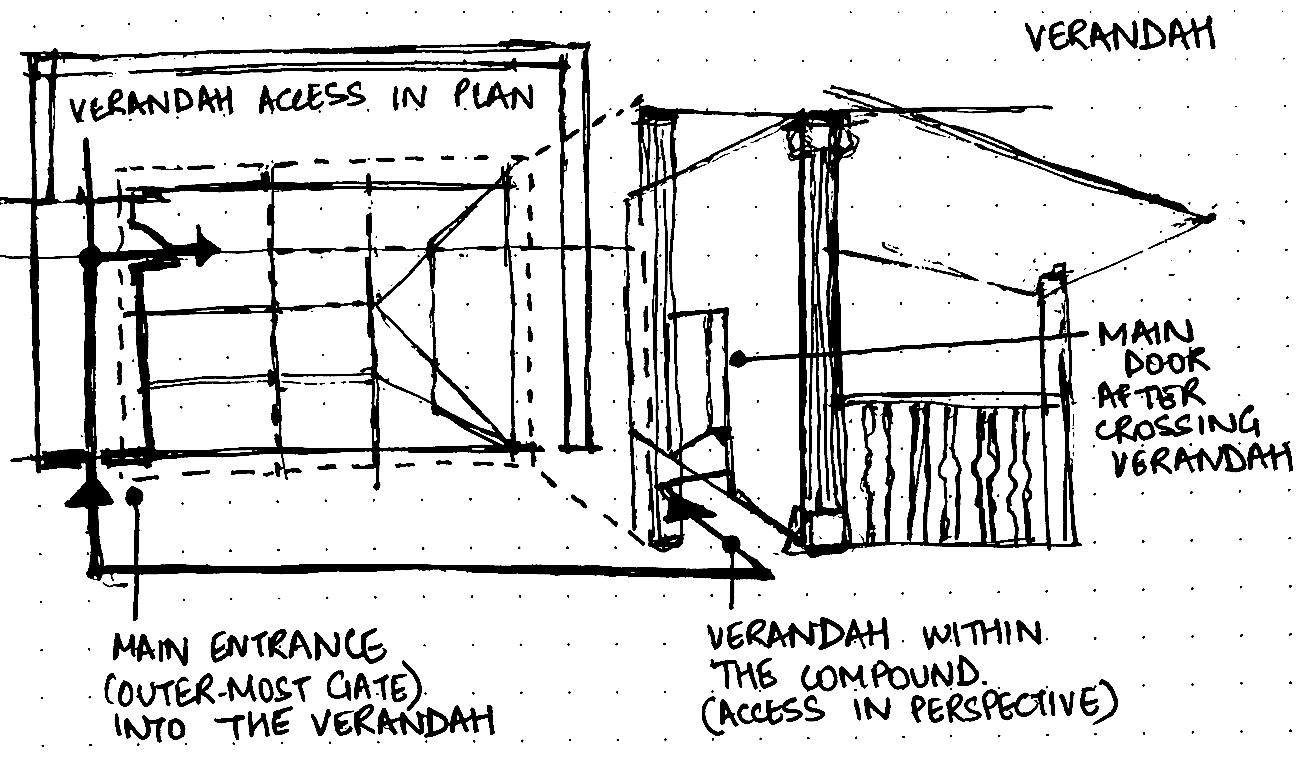 VERANDAH
VERANDAH ACCESS IN PLAN
MAIN
DOOR
AFTER
CROSSING
VERANDAH
MAIN ENTRANCE
(OUTER-MOST GATE)
INTO THE VERANDAH
VERANDAH WITHIN
THE COMPOUND.
(ACCESS IN PERSPECTIVE)